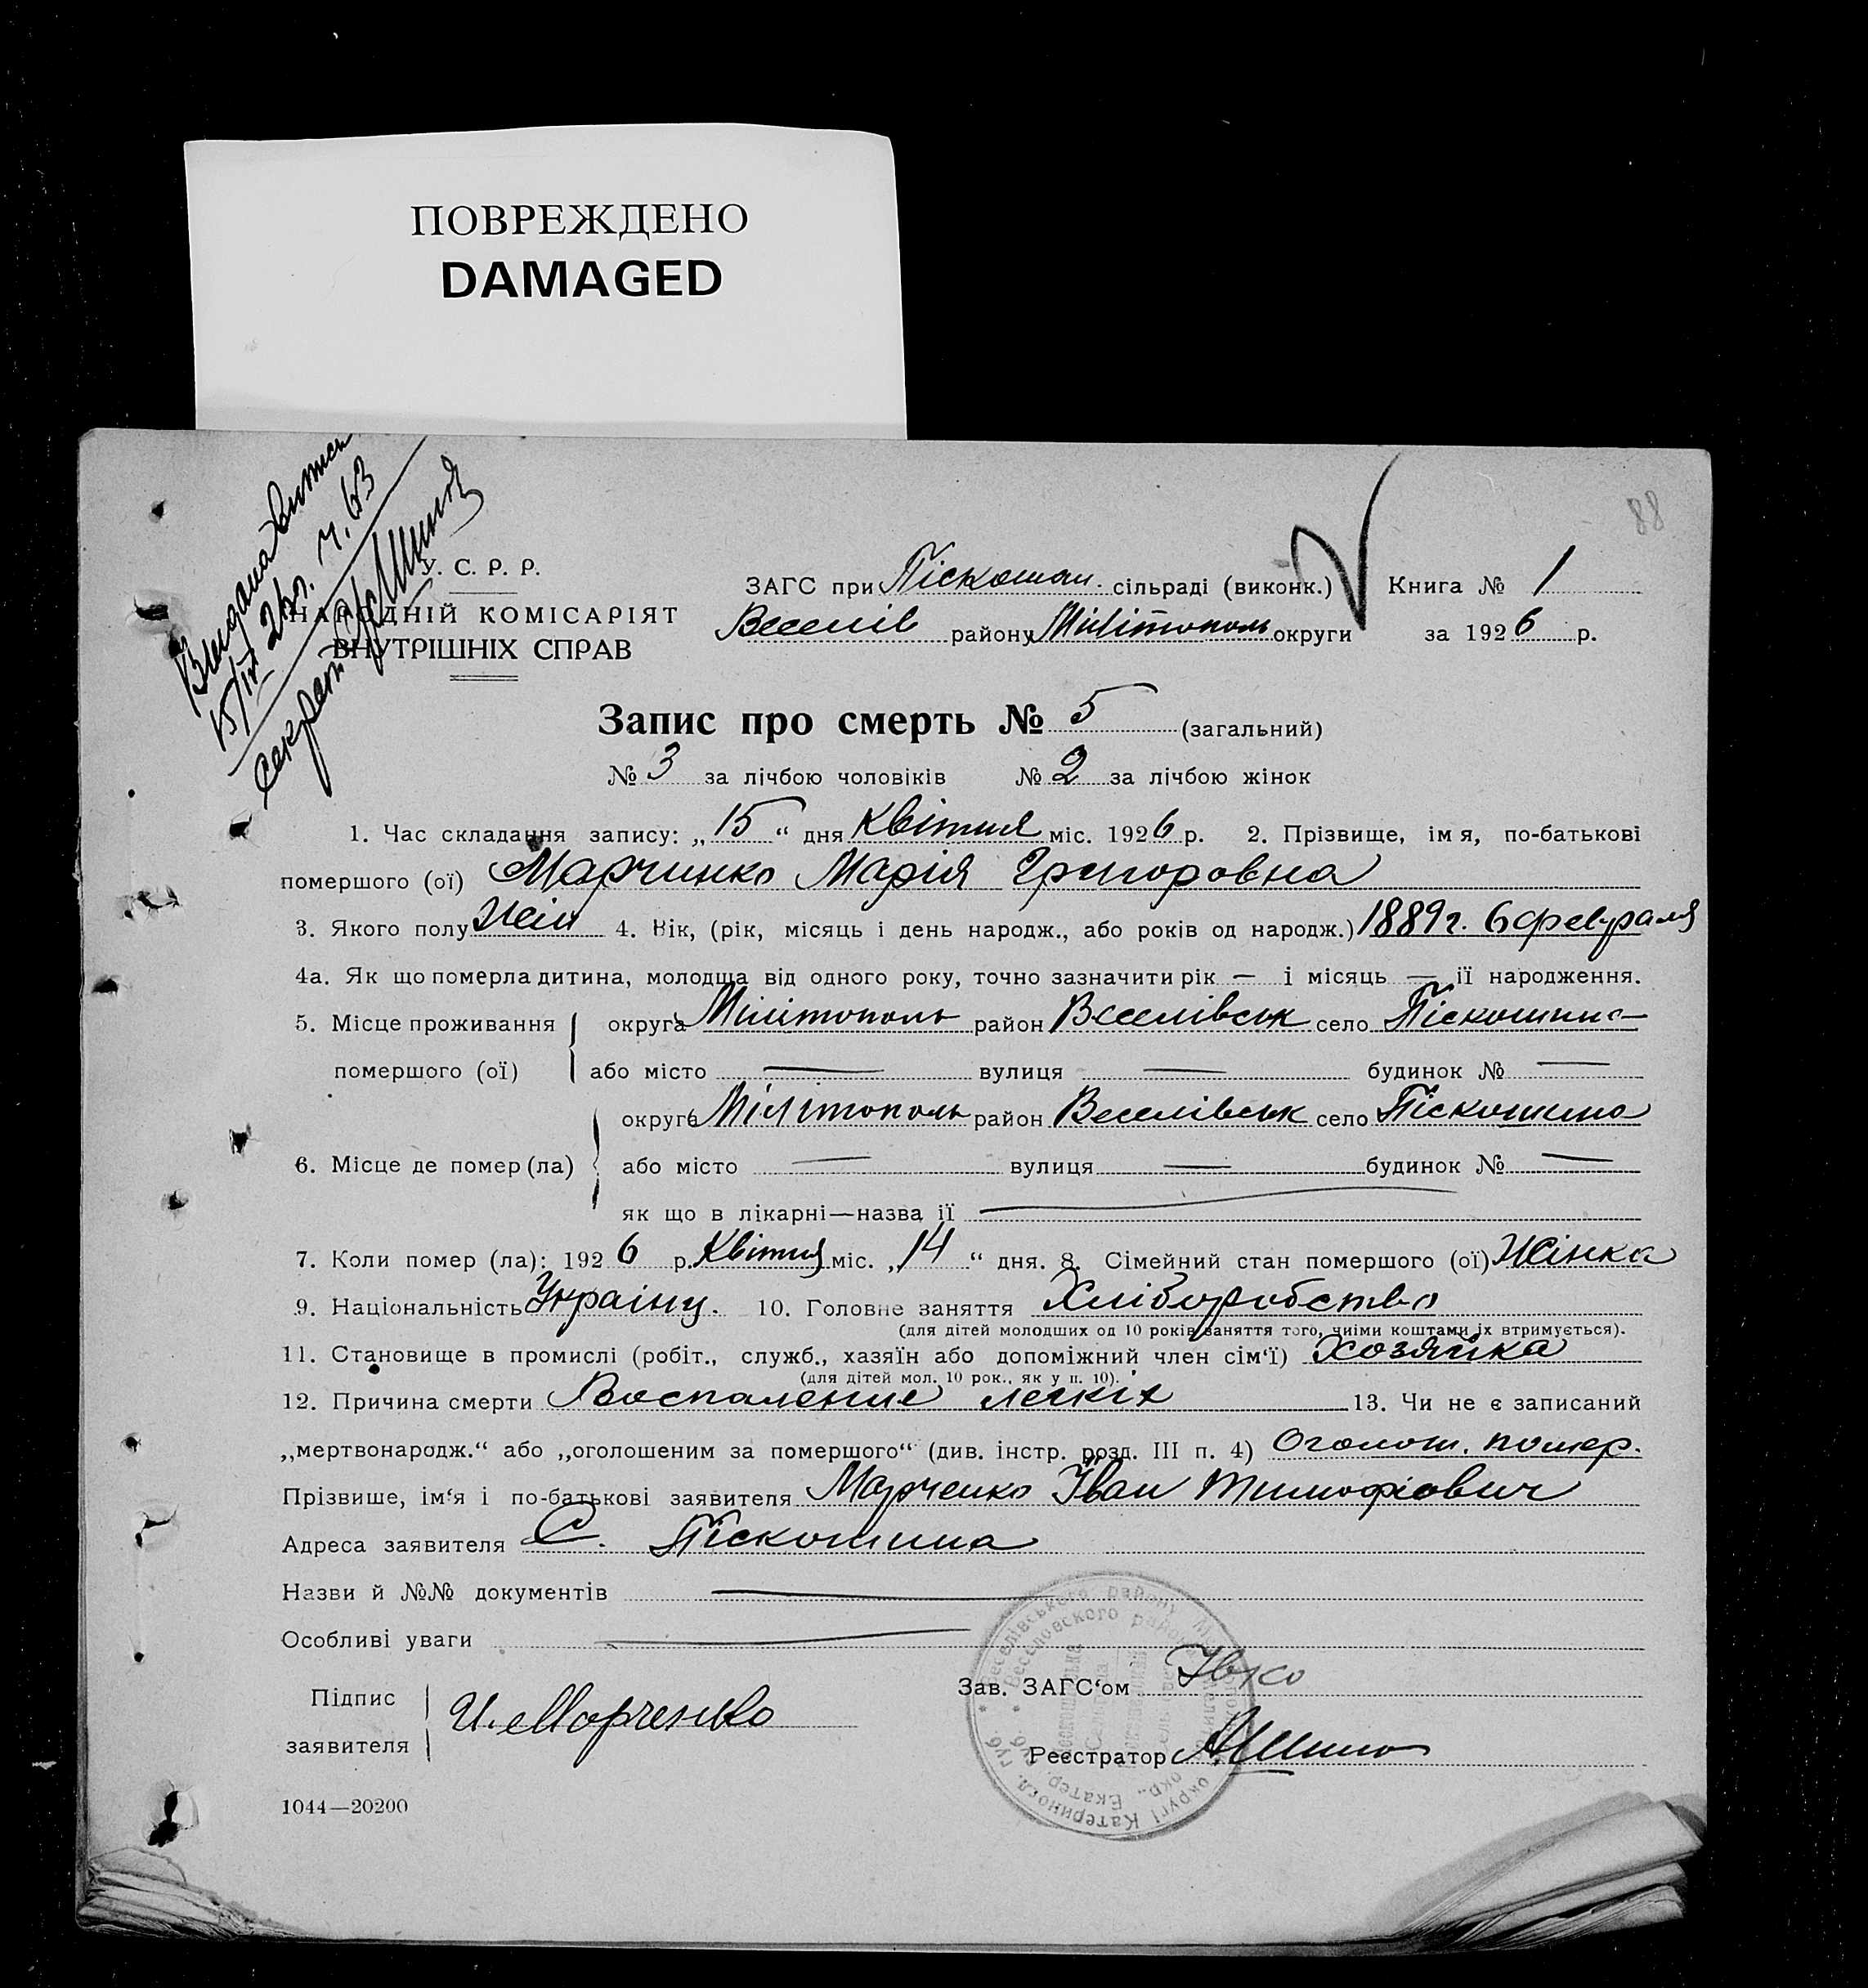 ПОВРЕЖДЕНО
DAMAGED
88
Видана витись
15/IV 26 г. ч. 63
Секретар
У. С. Р. Р.
НАРОДНІЙ КОМІСАРІЯТ
ВНУТРІШНІХ СПРАВ
ЗАГС при Піскошан. сільраді (виконк.) Книга № 1
Веселів району Мілітополь округи за 1926 р.
Запис про смерть № 5 (загальний)
№ 3 за лічбою чоловіків № 2 за лічбою жінок
1. Час складання запису: „15“ дня Квітня міс. 1926 р. 2. Прізвище, імя, по-батькові
помершого (ої) Марчинко Марія Григоровна
3. Якого полу Жін 4. Вік, (рік, місяць і день народж., або років од народж.) 1889 г. 6 февраля
4а. Як що померла дитина, молодща від одного року, точно зазначити рік — і місяць — її народження.
5. Місце проживання округа Мілітополь район Веселівськ село Піскошино
помершого (ої) або місто — вулиця — будинок № —
округа Мілітополь район Веселівськ село Піскошино
6. Місце де помер (ла) або місто — вулиця — будинок № —
як що в лікарні—назва її —
7. Коли помер (ла): 1926 р. Квітня міс. „14“ дня. 8. Сімейний стан помершого (ої) Жінка
9. Національність Україну. 10. Головне заняття Хліборобство
(для дітей молодших од 10 років заняття того, чиїми коштами їх втримується).
11. Становище в промислі (робіт., служб., хазяїн або допоміжний член сім‘ї) Хозяйка
(для дітей мол. 10 рок., як у п. 10).
12. Причина смерти Воспаление легкіх 13. Чи не є записаний
„мертвонародж.“ або „оголошеним за помершого“ (див. інстр. розд. III п. 4) Оголош. помер.
Прізвише, ім‘я і по-батькові заявителя Марченко Іван Тимофіович
Адреса заявителя С. Піскошина
Назви й №№ документів —
Особливі уваги —
Підпис
заявителя И. Марченко
Зав. ЗАГС‘ом
Реєстратор
1044—20200